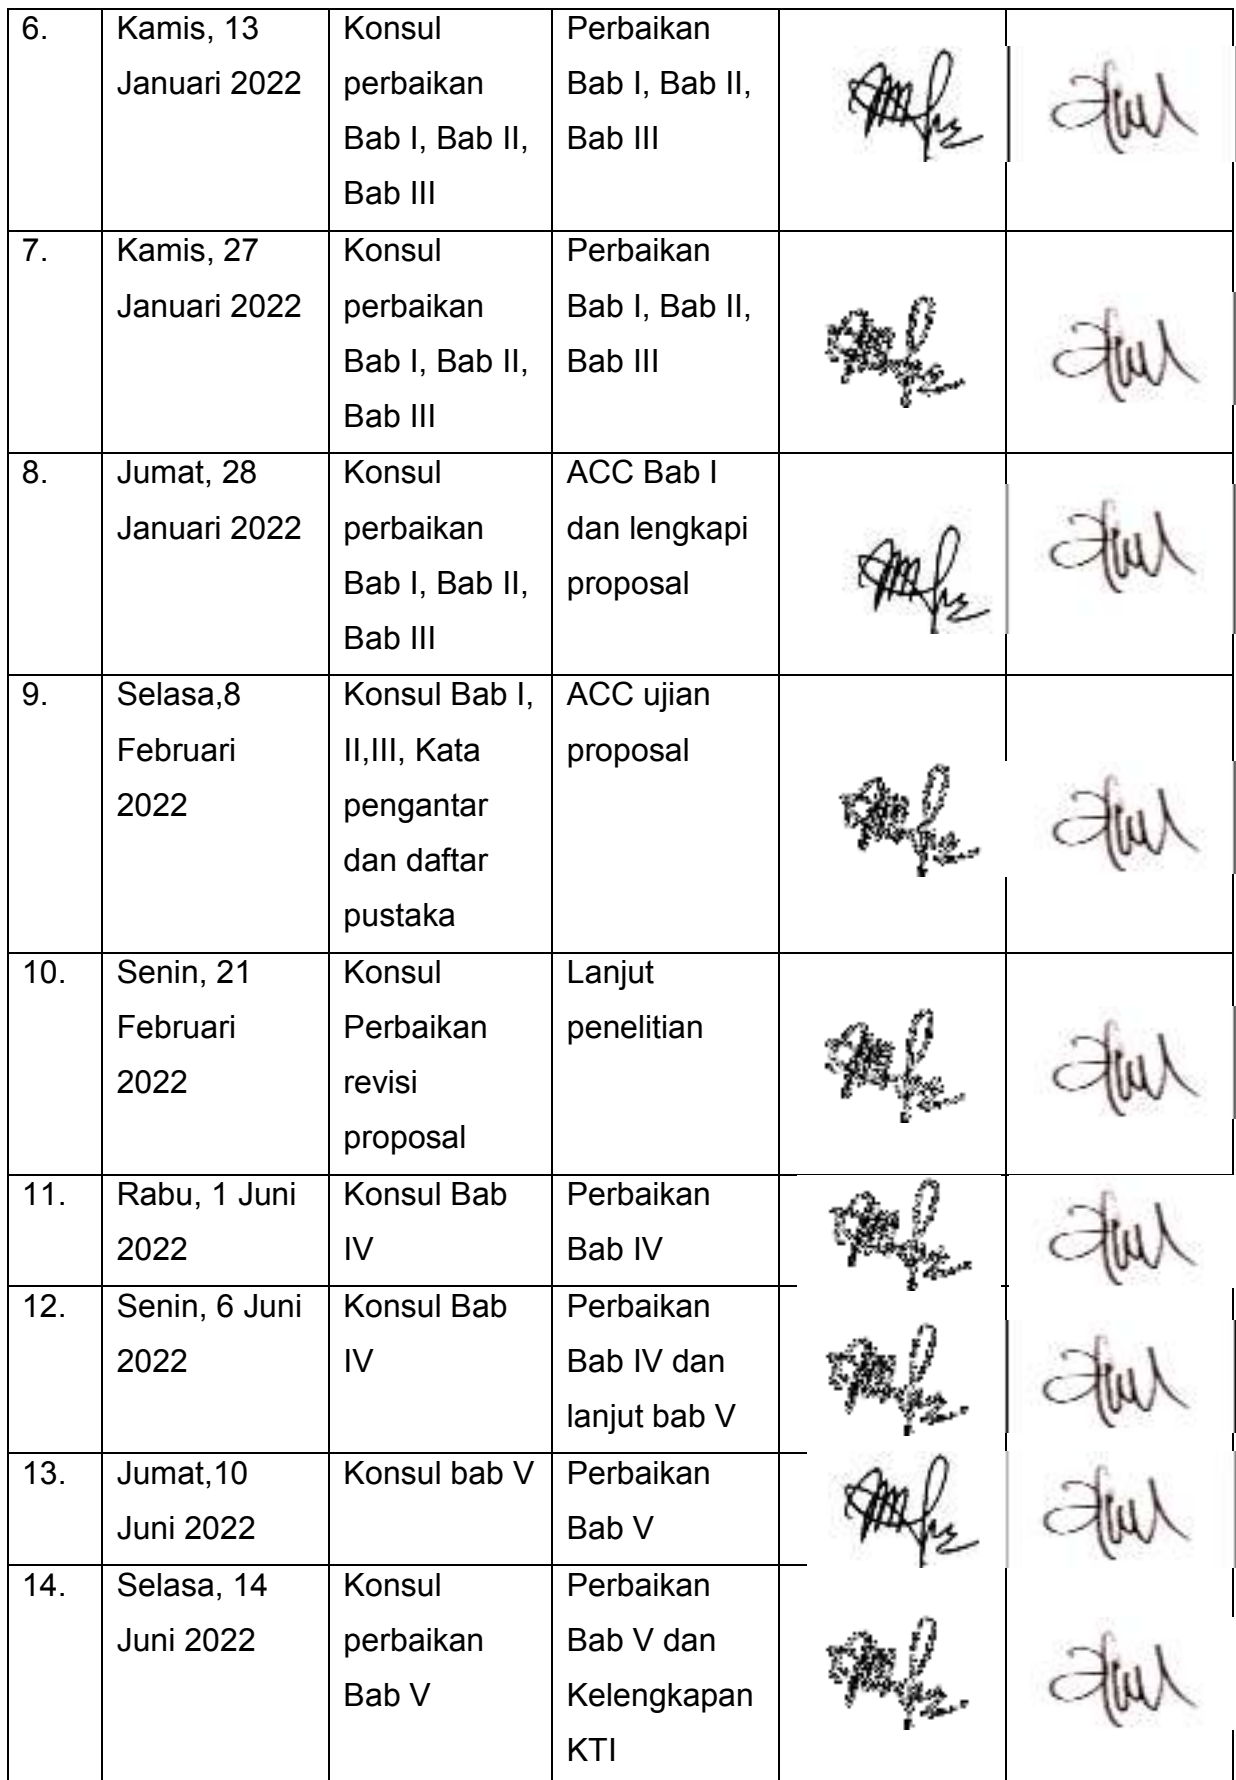 6.
Kamis, 13
Januari 2022
Konsul
perbaikan
Bab I, Bab II,
Bab III
Perbaikan
Bab I, Bab II,
Bab III
7.
Kamis, 27
Januari 2022
Konsul
perbaikan
Bab I, Bab II,
Bab III
Perbaikan
Bab I, Bab II,
Bab III
8.
Jumat, 28
Januari 2022
Konsul
perbaikan
Bab I, Bab II,
Bab III
ACC Bab I
dan lengkapi
proposal
9.
Selasa,8
Februari
2022
Konsul Bab I,
II,III, Kata
pengantar
dan daftar
pustaka
ACC ujian
proposal
10.
Senin, 21
Februari
2022
Konsul
Perbaikan
revisi
proposal
Lanjut
penelitian
11.
Rabu, 1 Juni
2022
Konsul Bab
IV
Perbaikan
Bab IV
12.
Senin, 6 Juni
2022
Konsul Bab
IV
Perbaikan
Bab IV dan
lanjut bab V
13.
Jumat,10
Juni 2022
Konsul bab V
Perbaikan
Bab V
14.
Selasa, 14
Juni 2022
Konsul
perbaikan
Bab V
Perbaikan
Bab V dan
Kelengkapan
KTI